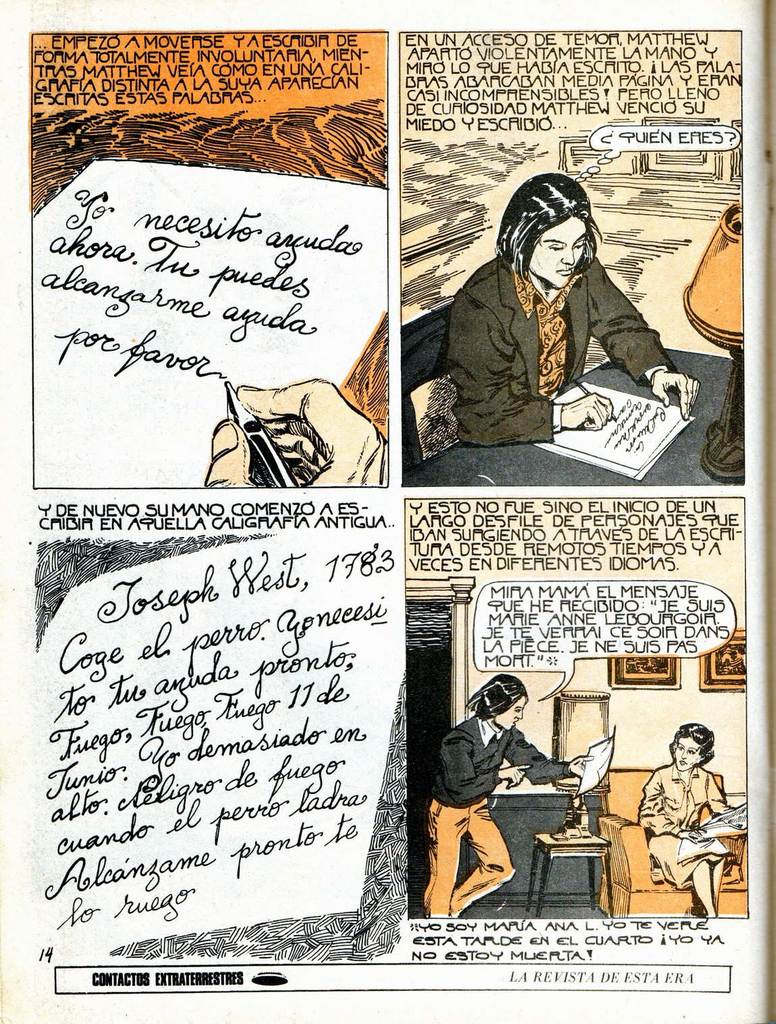 ... EMPEZÓ A MOVERSE Y A ESCRIBIR DE
FORMA TOTALMENTE INVOLUNTARIA, MIEN-
TRAS MATTHEW VEÍA COMO EN UNA CALI-
GRAFÍA DISTINTA A LA SUYA APARECÍAN
ESCRITAS ESTAS PALABRAS...
Yo necesito ayuda
ahora. Tu puedes
alcanzarme ayuda
por favor
EN UN ACCESO DE TEMOR, MATTHEW
APARTÓ VIOLENTAMENTE LA MANO Y
MIRÓ LO QUE HABÍA ESCRITO. ¡LAS PALA-
BRAS ABARCABAN MEDIA PÁGINA Y ERAN
CASI INCOMPRENSIBLES! PERO LLENO
DE CURIOSIDAD MATTHEW VENCIÓ SU
MIEDO Y ESCRIBIÓ...
¿ QUIÉN ERES?
Y DE NUEVO SU MANO COMENZÓ A ES-
CRIBIR EN AQUELLA CALIGRAFÍA ANTIGUA..
Joseph West, 1783
Coge el perro. Yo necesi
to tu ayuda pronto;
Fuego, Fuego, Fuego 11 de
Junio. Yo demasiado en
alto. Peligro de fuego
cuando el perro ladra
Alcánzame pronto te
lo ruego
Y ESTO NO FUE SINO EL INICIO DE UN
LARGO DESFILE DE PERSONAJES QUE
IBAN SURGIENDO A TRAVES DE LA ESCRI-
TURA DESDE REMOTOS TIEMPOS Y A
VECES EN DIFERENTES IDIOMAS.
MIRA MAMÁ EL MENSAJE
QUE HE RECIBIDO: "JE SUIS
MARIE ANNE LEBOURGOIR.
JE TE VERRAI CE SOIR DANS
LA PIÈCE. JE NE SUIS PAS
MORT."※
※YO SOY MARÍA ANA L. YO TE VERE
ESTA TARDE EN EL CUARTO ¡YO YA
NO ESTOY MUERTA!
14
CONTACTOS EXTRATERRESTRES
LA REVISTA DE ESTA ERA